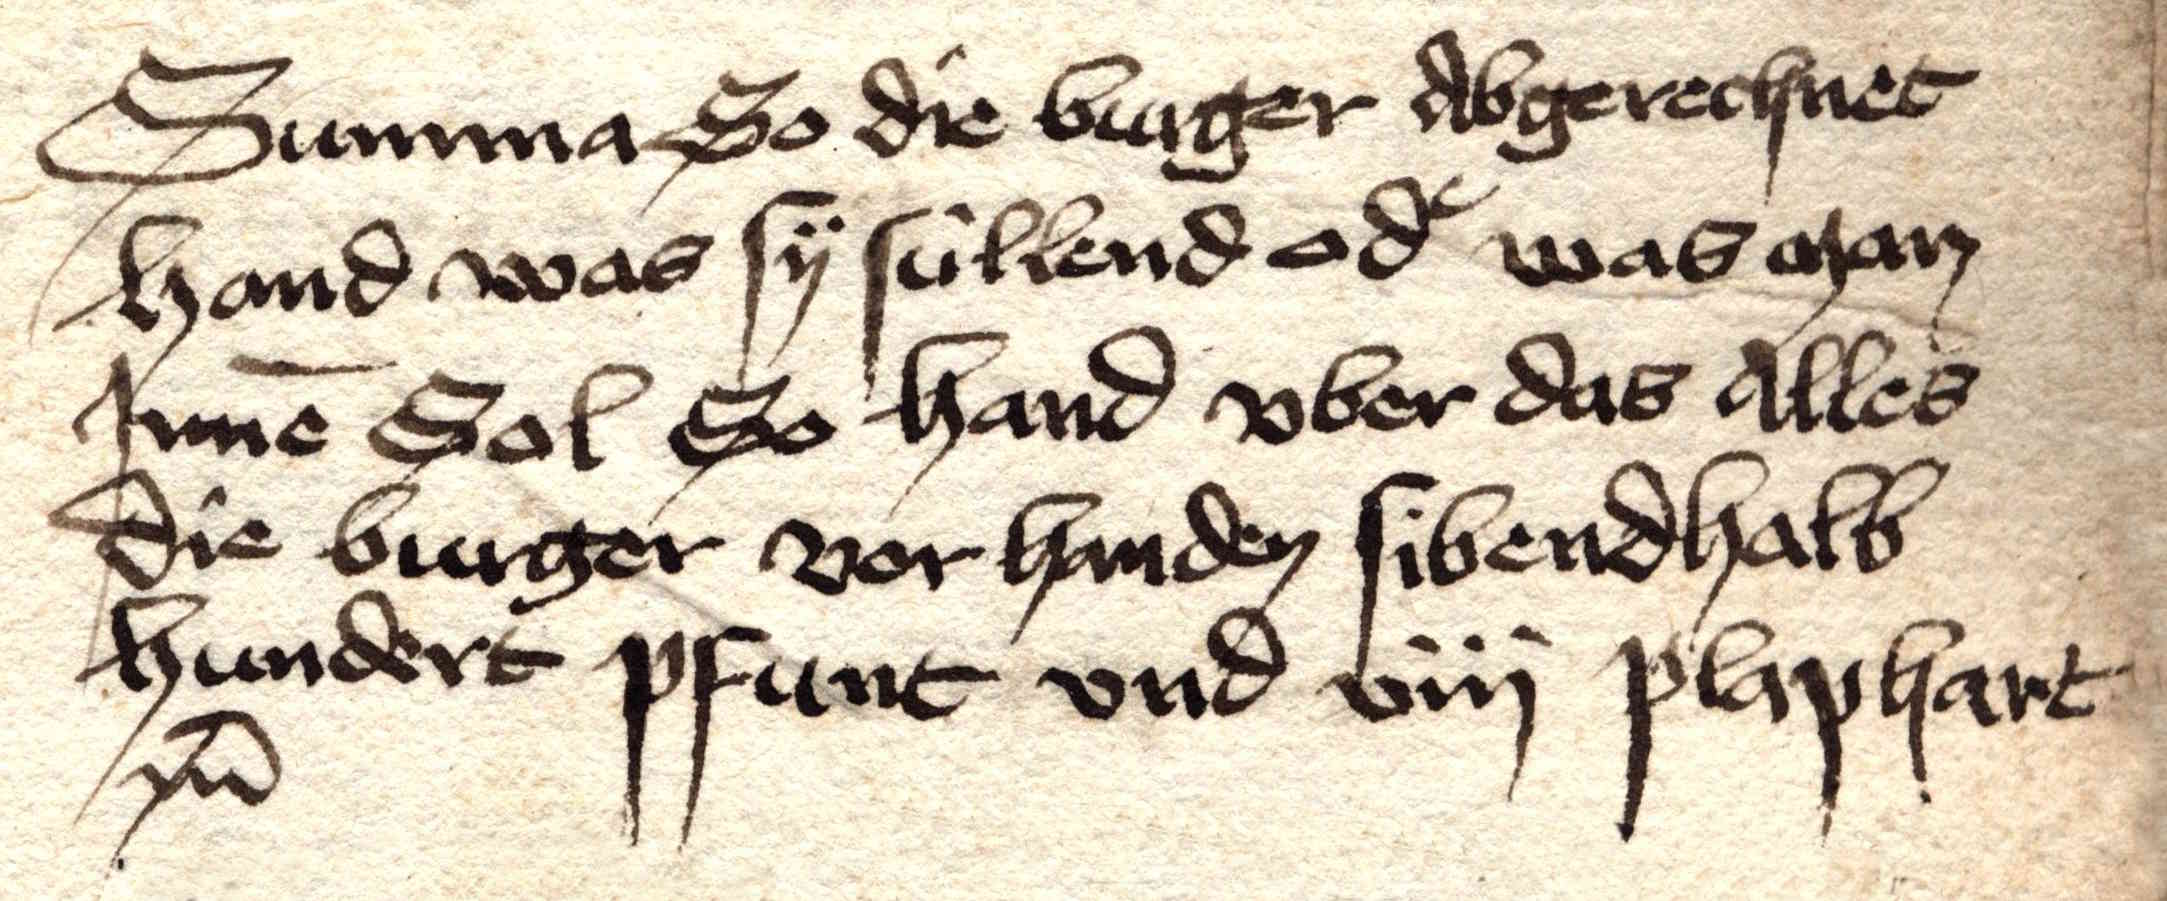 Summa So die burger Abgerechnet
hand was sÿ süllend od̾ was man
Jnnē Sol So hand vber das Alles
die burger vor handen sibendhalb
hundert pfunt vnd viij plaphart